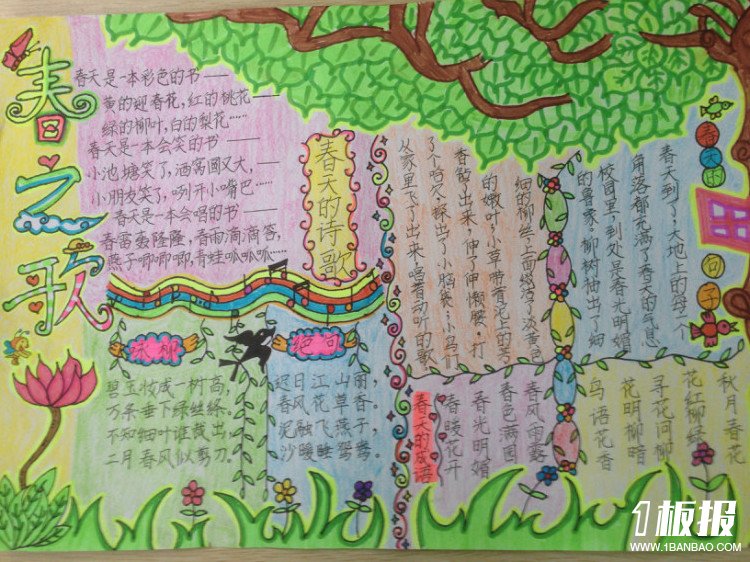 春之歌
春天是一本彩色的书——
黄的迎春花,红的桃花——
绿的柳叶,白的梨花……
春天是一本会笑的书——
小池塘笑了,酒窝圆又大,——
小朋友笑了,咧开小嘴巴……
春天是一本会唱的书——
春雷轰隆隆,春雨滴滴答,
燕子唧唧唧,青蛙呱呱呱……
春天的诗歌
咏柳
碧玉妆成一树高,
万条垂下绿丝绦。
不知细叶谁裁出,
二月春风似剪刀。
绝句
迟日江山丽,
春风花草香。
泥融飞燕子,
沙暖睡鸳鸯。
春天的句子
春天到了!大地上的每一个
角落都充满了春天的气息
校园里,到处是春光明媚
的景象。柳树抽出了细
细的柳丝,上面缀满了淡黄色
的嫩叶;小草带着泥土的芳
香钻了出来,伸了伸懒腰,打
了个哈欠,探出了小脑袋;小鸟们
从家里飞了出来,唱着动听的歌
春天的成语
春暖花开
春光明媚
春色满园
春风雨露
鸟语花香
花明柳暗
寻花问柳
花红柳绿
秋月春花
1板报
WWW.1BANBAO.COM